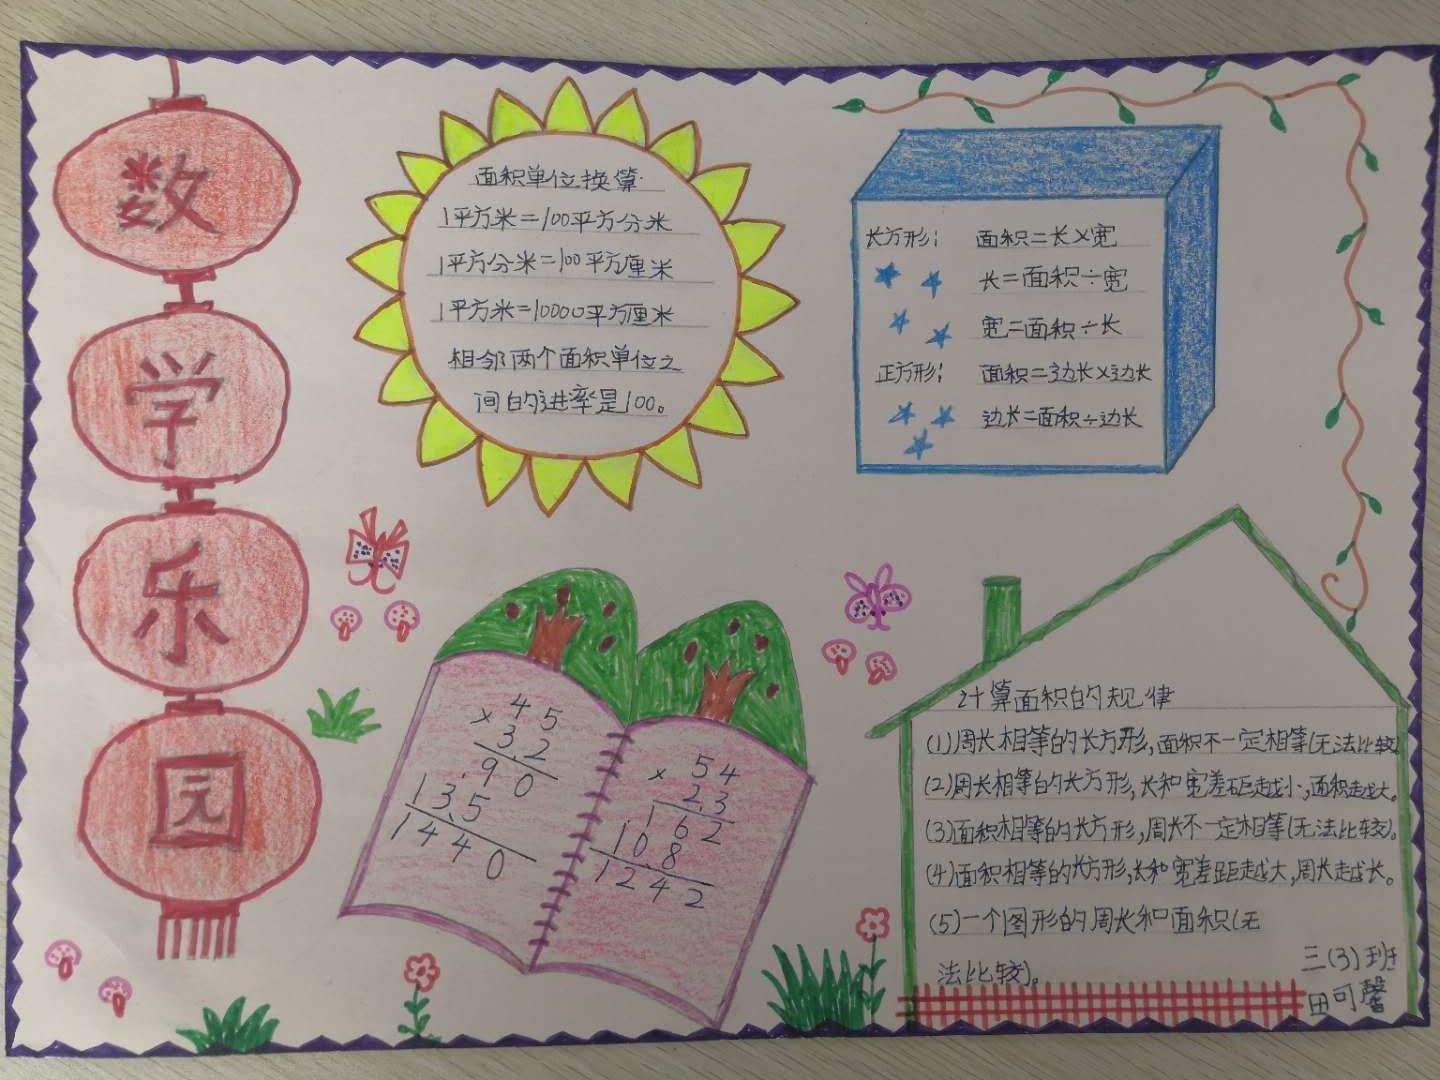 数
学
乐
园
面积单位换算
1平方米=100平方分米
1平方分米=100平方厘米
1平方米=10000平方厘米
相邻两个面积单位之
间的进率是100。
长方形: 面积=长×宽
长=面积÷宽
宽=面积÷长
正方形: 面积=边长×边长
边长=面积÷边长
45
×32
90
135
1440
54
×23
162
108
1242
计算面积的规律
(1)周长相等的长方形,面积不一定相等(无法比较
(2)周长相等的长方形,长和宽差距越小,面积越大。
(3)面积相等的长方形,周长不一定相等(无法比较)。
(4)面积相等的长方形,长和宽差距越大,周长越长。
(5)一个图形的周长和面积(无
法比较)。
三(3)班
田可馨